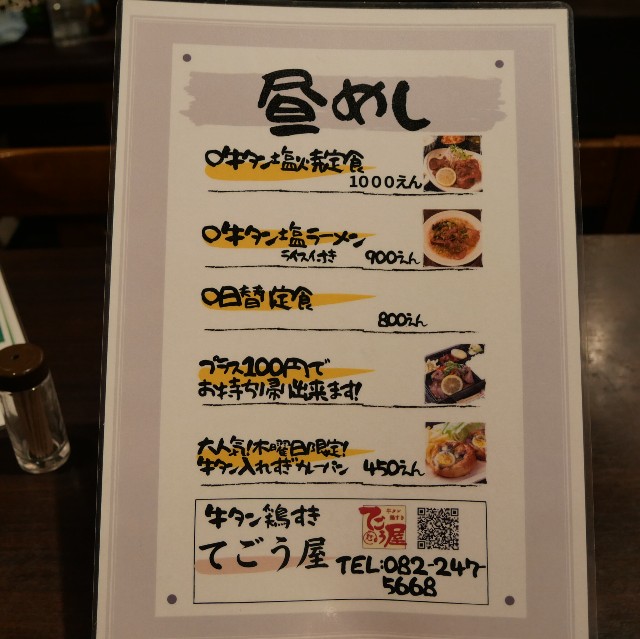 昼めし
○牛タン塩焼定食
1000えん
○牛タン塩ラーメン
ライス付き 900えん
○日替定食
800えん
プラス100円で
お持ち帰り出来ます!
大人気!木曜日限定!
牛タン入れすぎカレーパン 450えん
牛タン鶏すき
てごう屋
てごう屋
TEL:082-247-
5668